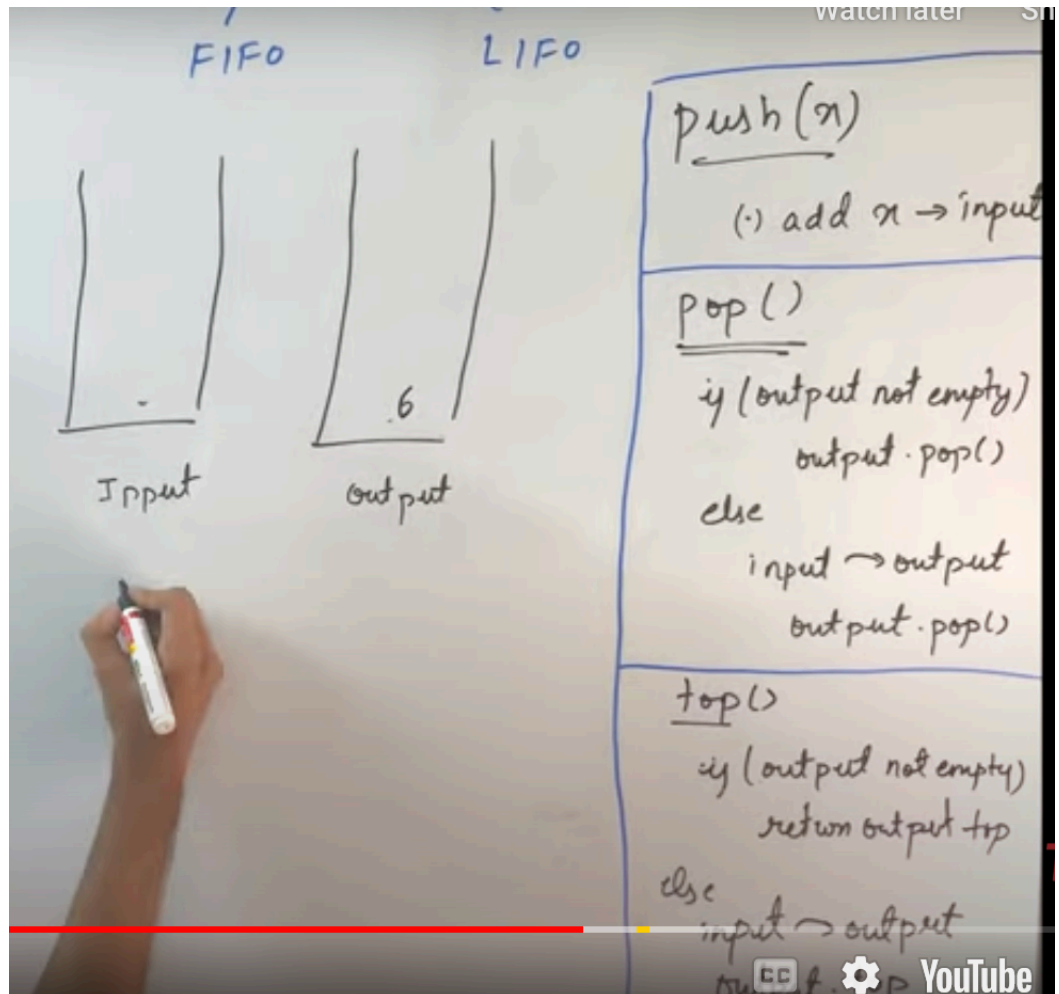 Watch later
FIFO
LIFO
6
Input
output
push(x)
(·) add x → input
pop()
if (output not empty)
output.pop()
else
input → output
output.pop()
top()
if (output not empty)
return output top
else
input → output
CC
YouTube